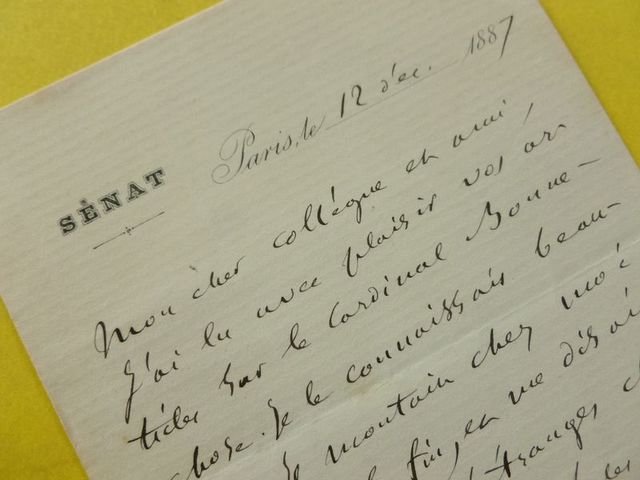 SÉNAT
Paris, le 12 déc. 1887
Mon cher collègue et ami,
J'ai lu avec plaisir vos ar
ticles sur le Cardinal Bonne-
chose. Je le connaissais beau-
montain chez moi
fin, en me disai
étranges